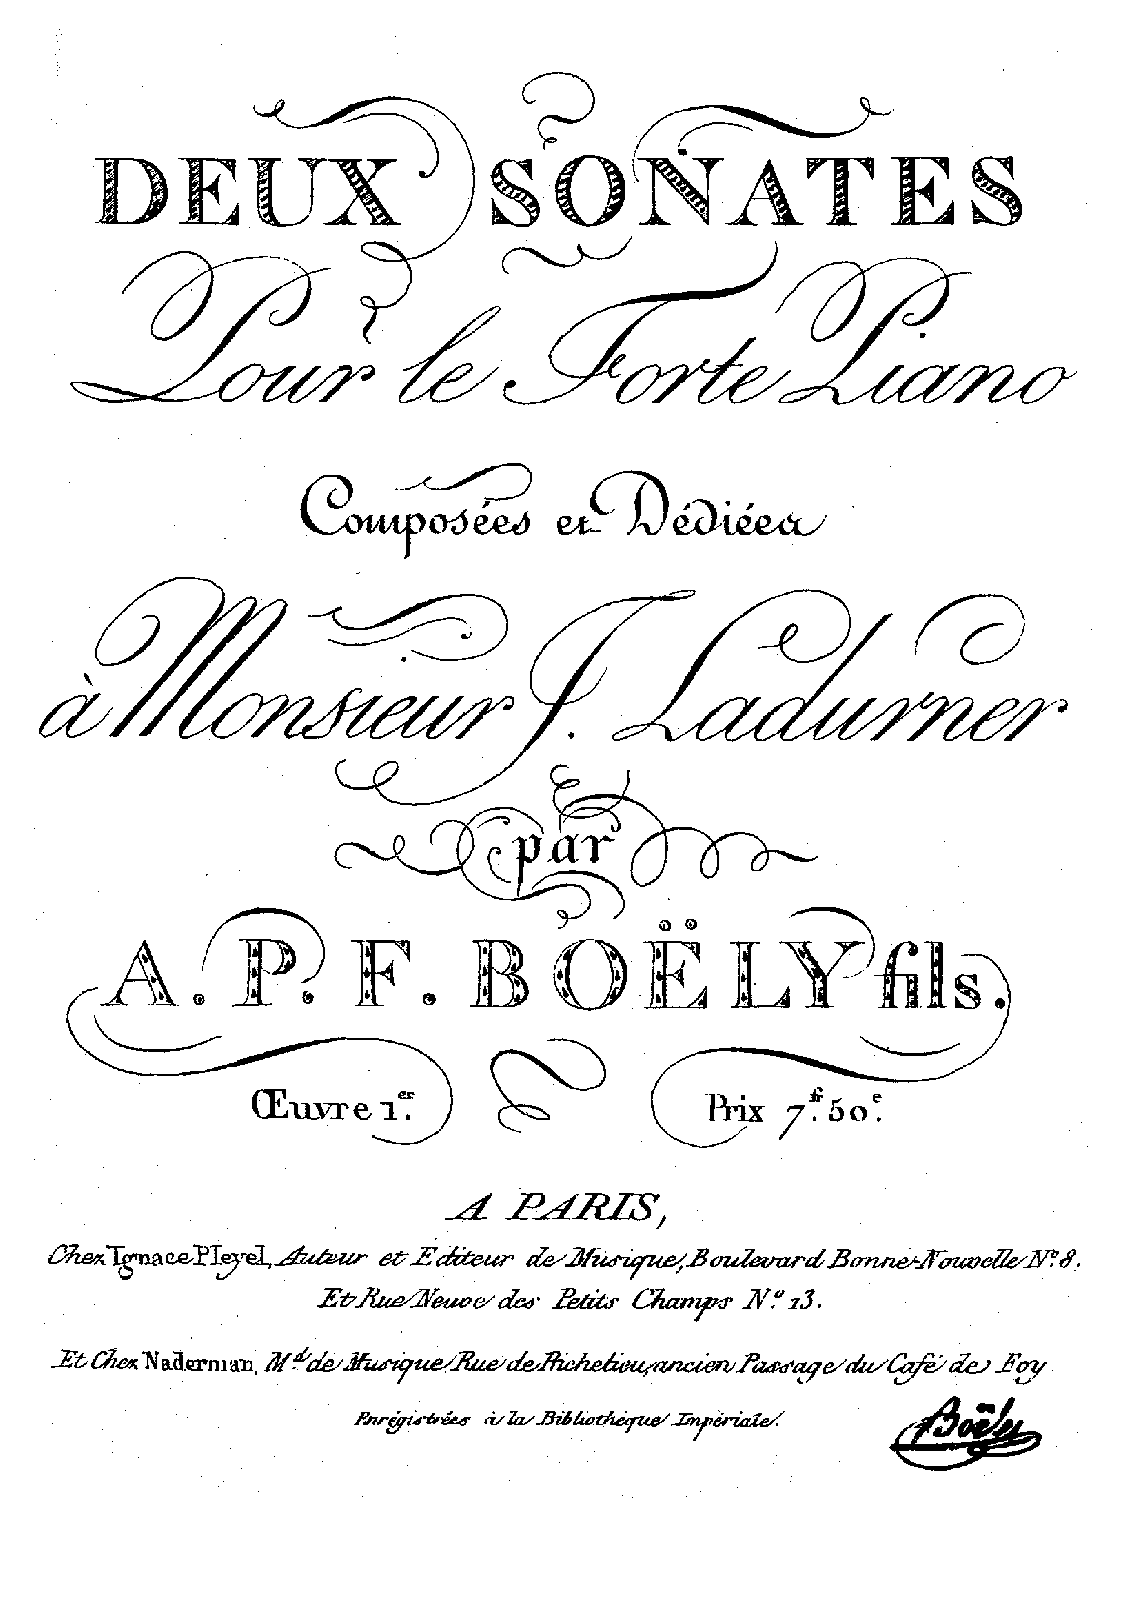 DEUX SONATES
Pour le Forte Piano
Composées et Dédiées
à Monsieur J. Ladurner
par
A. P. F. BOËLY fils.
Œuvre 1.er Prix 7.fr 50.c
A PARIS,
Chez Ignace Pleyel, Auteur et Editeur de Musique, Boulevard Bonne-Nouvelle N.o 8.
Et Rue Neuve des Petits Champs N.o 13.
Et Chez Naderman, M.d de Musique Rue de Richelieu, ancien Passage du Café de Foy
Enrégistrées à la Bibliothèque Impériale.
Boëly